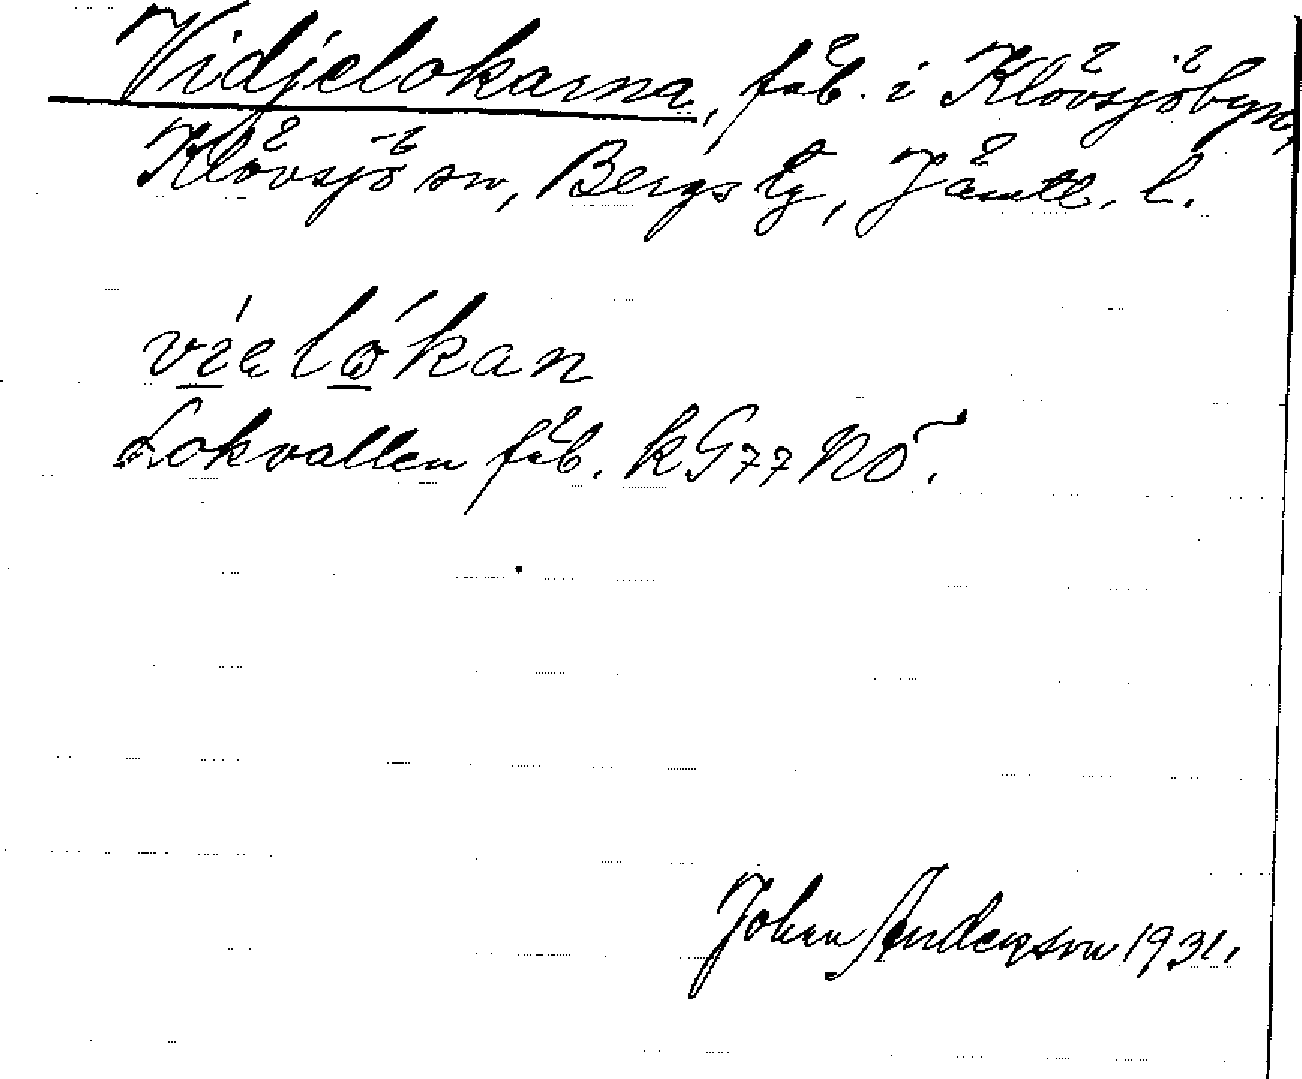 Vidjelokarna, fäb. i Klövsjöbyn,
Klövsjö sn, Bergs tg, Jämtl. l.
vie lókan
Lokvallen fäb. kG77 NÖ.
Johan Anderson 1931.